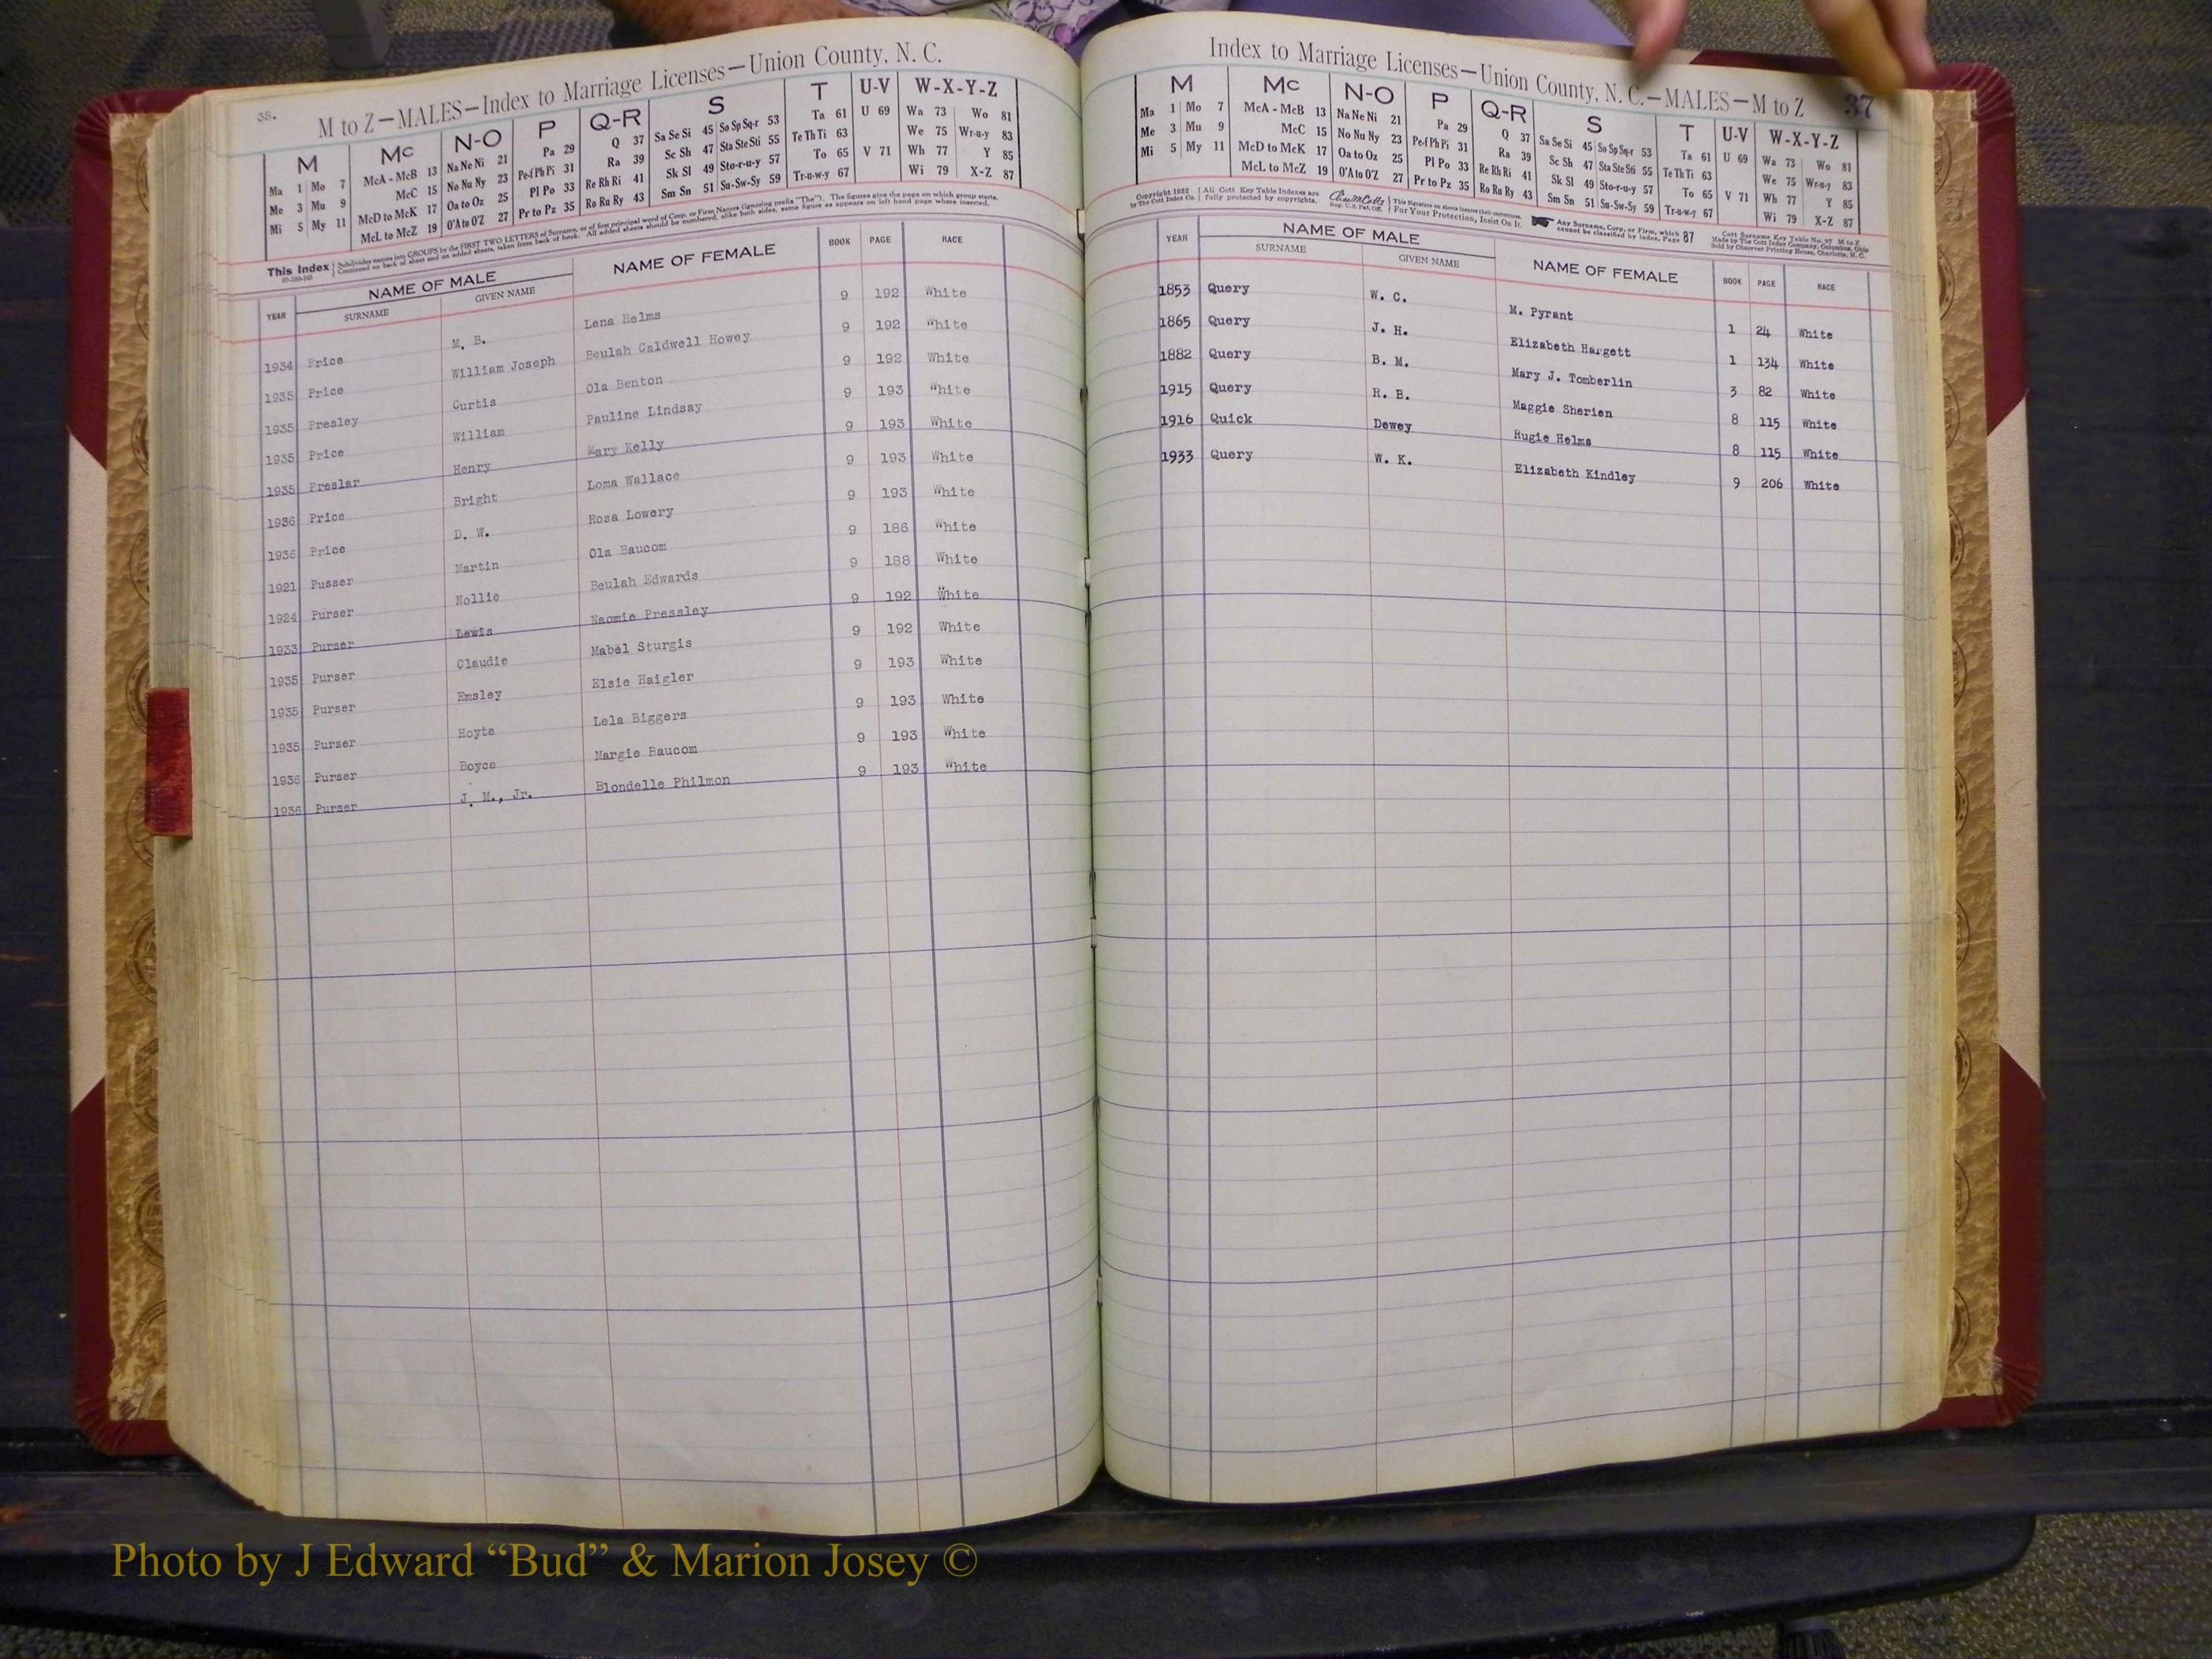 35.
M to Z—MALES—Index to Marriage Licenses—Union County, N. C.
M Mc N-O P Q-R S T U-V W-X-Y-Z
Ma 1 Mo 7 McA - McB 13 Na Ne Ni 21 Pa 29 Q 37 Sa Se Si 45 So Sp Sq-r 53 Ta 61 U 69 Wa 73 Wo 81
Me 3 Mu 9 McC 15 No Nu Ny 23 Pe-f Ph Pi 31 Ra 39 Sc Sh 47 Sta Ste Sti 55 Te Th Ti 63 We 75 Wr-u-y 83
Mi 5 My 11 McD to McK 17 Oa to Oz 25 Pl Po 33 Re Rh Ri 41 Sk Sl 49 Sto-r-u-y 57 To 65 V 71 Wh 77 Y 85
McL to McZ 19 O'A to O'Z 27 Pr to Pz 35 Ro Ru Ry 43 Sm Sn 51 Su-Sw-Sy 59 Tr-u-w-y 67 Wi 79 X-Z 87
This Index Subdivides names into GROUPS by the FIRST TWO LETTERS of Surname, or of first principal word of Corp. or Firm Names (ignoring prefix "The"). The figures give the page on which group starts.
Continued on back of sheet and on added sheets, taken from back of book. All added sheets should be numbered, alike both sides, same figure as appears on left hand page where inserted.
YEAR NAME OF MALE NAME OF FEMALE BOOK PAGE RACE
SURNAME GIVEN NAME
1934 Price M. B. Lena Helms 9 192 White
1935 Price William Joseph Beulah Caldwell Howey 9 192 White
1935 Presley Curtis Ola Benton 9 192 White
1935 Price William Pauline Lindsay 9 193 White
1935 Preslar Henry Mary Kelly 9 193 White
1936 Price Bright Loma Wallace 9 193 White
1936 Price D. W. Rosa Lowery 9 193 White
1921 Pusser Martin Ola Baucom 9 186 White
1924 Purser Nollie Beulah Edwards 9 188 White
1933 Purser Lewis Naomie Pressley 9 192 White
1935 Purser Claudie Mabel Sturgis 9 192 White
1935 Purser Emsley Elsie Haigler 9 193 White
1935 Purser Hoyte Lela Biggers 9 193 White
1936 Purser Boyce Margie Baucom 9 193 White
1936 Purser J. M., Jr. Blondelle Philmon 9 193 White
Index to Marriage Licenses—Union County, N. C.—MALES—M to Z 37
M Mc N-O P Q-R S T U-V W-X-Y-Z
Ma 1 Mo 7 McA - McB 13 Na Ne Ni 21 Pa 29 Q 37 Sa Se Si 45 So Sp Sq-r 53 Ta 61 U 69 Wa 73 Wo 81
Me 3 Mu 9 McC 15 No Nu Ny 23 Pe-f Ph Pi 31 Ra 39 Sc Sh 47 Sta Ste Sti 55 Te Th Ti 63 We 75 Wr-u-y 83
Mi 5 My 11 McD to McK 17 Oa to Oz 25 Pl Po 33 Re Rh Ri 41 Sk Sl 49 Sto-r-u-y 57 To 65 V 71 Wh 77 Y 85
McL to McZ 19 O'A to O'Z 27 Pr to Pz 35 Ro Ru Ry 43 Sm Sn 51 Su-Sw-Sy 59 Tr-u-w-y 67 Wi 79 X-Z 87
Copyright 1932 All Cott Key Table Indexes are
by The Cott Index Co. fully protected by copyrights.
Reg. U.S. Pat. Off. For Your Protection, Insist On It.
Any Surname, Corp. or Firm, which
cannot be classified by index, Page 87
Cott Surname Key Table No. 97 M to Z
Made by The Cott Index Company, Columbus, Ohio
Sold by Observer Printing House, Charlotte, N. C.
YEAR NAME OF MALE NAME OF FEMALE BOOK PAGE RACE
SURNAME GIVEN NAME
1853 Query W. C. M. Pyrant 1 24 White
1865 Query J. H. Elizabeth Hargett 1 134 White
1882 Query B. M. Mary J. Tomberlin 3 82 White
1915 Query R. B. Maggie Sherien 8 115 White
1916 Quick Dewey Rugie Helms 8 115 White
1933 Query W. K. Elizabeth Kindley 9 206 White
Photo by J Edward “Bud” & Marion Josey ©